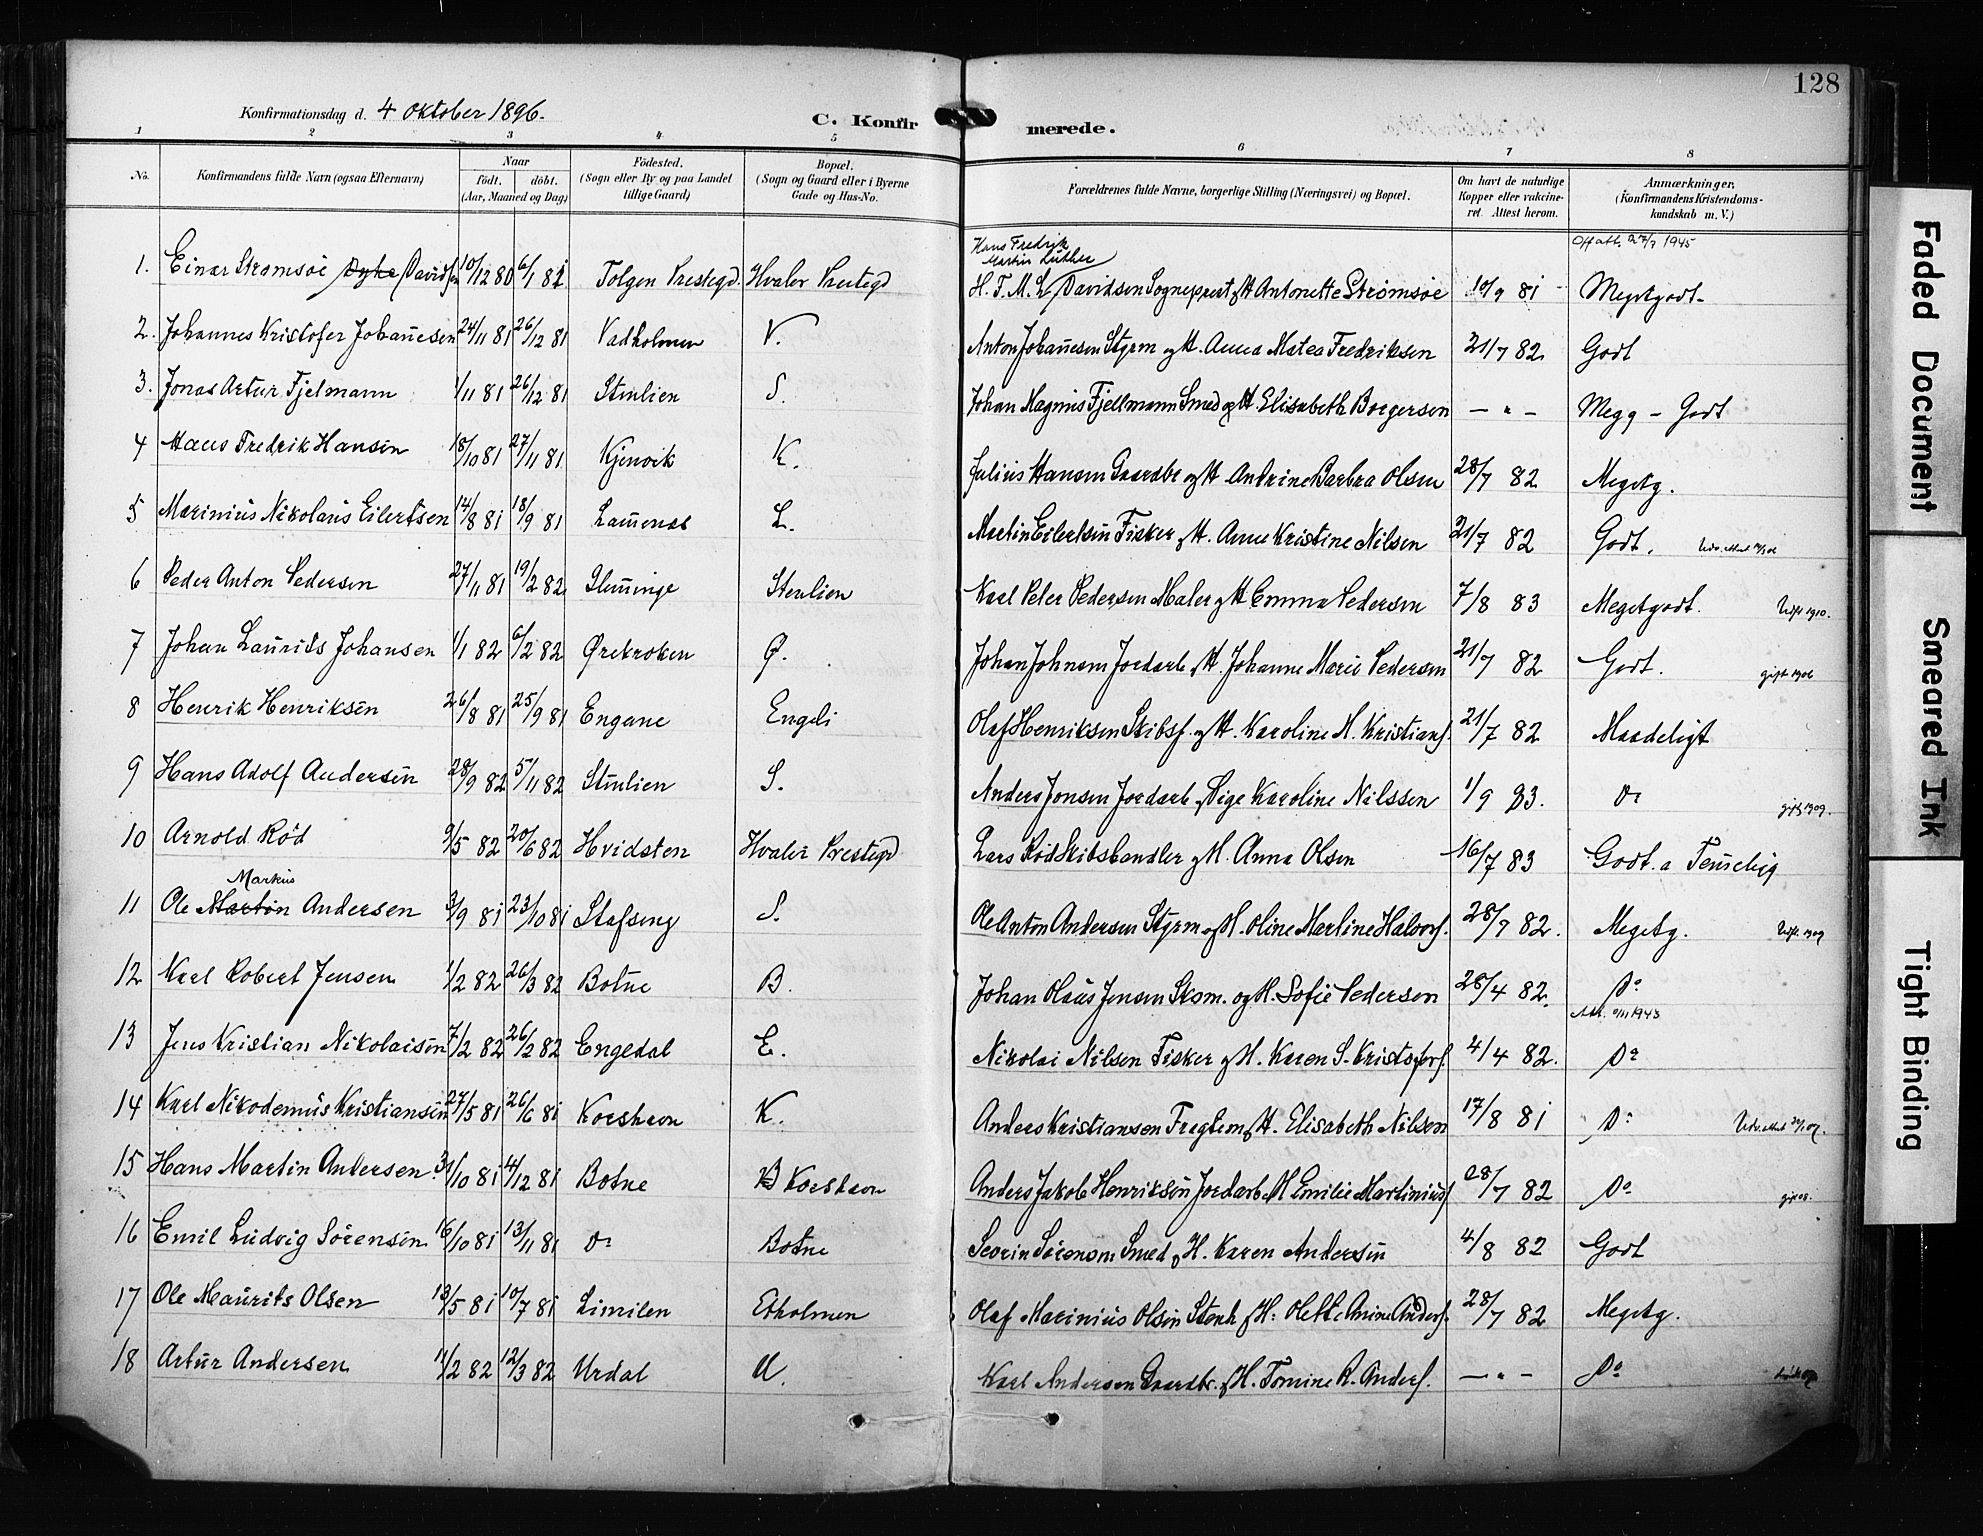 128
Konfirmationsdag d. 4 Oktober 1896.
C. Konfirmerede.
1 2 3 4 5 6 7 8
No. Konfirmandens fulde Navn (ogsaa Efternavn) Naar födt. döbt. (Aar, Maaned og Dag) Födested. (Sogn eller By og paa Landet tillige Gaard) Bopæl. (Sogn og Gaard eller i Byerne Gade og Hus-No. Forældrenes fulde Navne, borgerlige Stilling (Næringsvei) og Bopæl. Om havt de naturlige Kopper eller vakcineret. Attest herom. Anmærkninger. (Konfirmandens Kristendomskundskab m. V.)
Hans Fredrik Martin Luther 27/7 1945
1. Einar Strømsøe Davidsen 10/12 80 6/1 81 Tolgen Prestegd. Hvaler Prestegd H. F. M. L. Davidsen Sogneprest og H Antonette Strømsøe 10/9 81 Megetgodt.
2. Johannes Kristofer Johanesen 24/11 81 26/12 81 Vadholmen V. Anton Johanesen Styrm og H. Anna Matea Fredriksen 21/7 82 Godt
3. Jonas Artur Fjelmann 1/11 81 26/12 81 Stenlien S. Johan Magnus Fjellmann Smed og H Elisabeth Borgersen — " — Megg - Godt
4 Hans Fredrik Hansen 18/10 81 27/11 81 Kjenvik K. Julius Hansen Gaardbr og H Andrine Barbra Olsen 28/7 82 Megetg.
5 Marinius Nikolaus Eilertsen 14/8 81 18/9 81 L. Martin Eilertsen Fisker og H. Anne Kristine Nilsen 21/7 82 Godt.
6 Peder Anton Pedersen 27/11 81 19/2 82 Stenlien Karl Peter Pedersen Maler og H Emma Pedersen 7/8 83 Megetgodt. 1910.
7 Johan Laurits Johansen 1/1 82 6/2 82 Ørekroken Ø. Johan Johnsen Jordarb og H. Johanne Marie Pedersen 21/7 82 Godt. gift 1906
8 Henrik Henriksen 26/8 81 25/9 81 Engane Engeli Olaf Henriksen Skibsf. og H. Karoline M. Kristians. 21/7 82 Maadeligt
9 Hans Adolf Andersen 28/9 82 5/11 82 Stenlien S. Anders Jonsen Jordarb og Pige Karoline Nilssen 1/9 83. Do gift 1909.
10 Arnold Rød 9/5 82 20/6 82 Hvidsten Hvaler Prestegd Lars Rød Skibshandler og H. Anna Olsen 16/7 83 Godt.
Markus
11 Ole Martin Andersen 3/9 81 23/10 81 Stafseng S. Ole Anton Andersen Styrm og H. Oline Martine Halvors. 28/7 82. Megetg. 1909
12 Karl Robert Jensen 1/2 82 26/3 82 Botne B. Johan Olaus Jensen Skom. og H. Sofie Pedersen 28/4 82. Do
1943
13 Jens Kristian Nikolaisen 7/2 82 26/2 82 Engedal E. Nikolai Nilsen Fisker og H. Karen S. Kristofers. 4/4 82. Do
14 Karl Nikodemus Kristiansen 27/5 81 26/6 81 Korshavn K. Anders Kristiansen og H. Elisabeth Nilsen 17/8 81 Do
15 Hans Martin Andersen 31/10 81 4/12 81 Botne Korshavn Anders Jakob Henriksen Jordarb. H Emilie Martinius. 28/7 82 Do
16 Emil Ludvig Sörensen 16/10 81 13/11 81 Do Botne Severin Sörensen Smed og H. Karen Andersen 4/8 82 Godt
17 Ole Maurits Olsen 13/5 81 10/7 81 Limilen Etholmen Olaf Marinius Olsen Stenh og H. Olette Anine Anders. 28/7 82 Megetg.
18 Artur Andersen 11/2 82 12/3 82 Urdal U. Karl Andersen Gaardbr. og H. Tomine R. Anders. — " — Do
Faded Document
Smeared Ink
Tight Binding